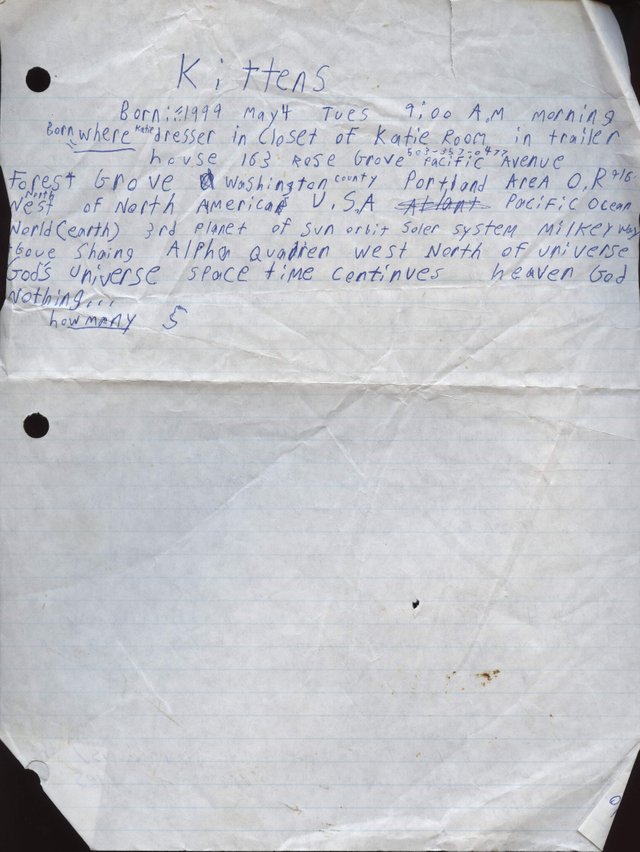 Kittens
Born: 1999 May 4 Tues 9:00 A.M morning
Born where Katie dresser in Closet of Katie Room in trailer
house 163 Rose Grove Pacific Avenue
Forest Grove Washington county Portland Area O,R
North West of North America U.S.A Atlant Pacific Ocean
World (earth) 3rd Planet of Sun orbit Soler system Milkey way
Alpha Quadren West North of universe
God's Universe space time continues heaven God
Nothing...
how many 5